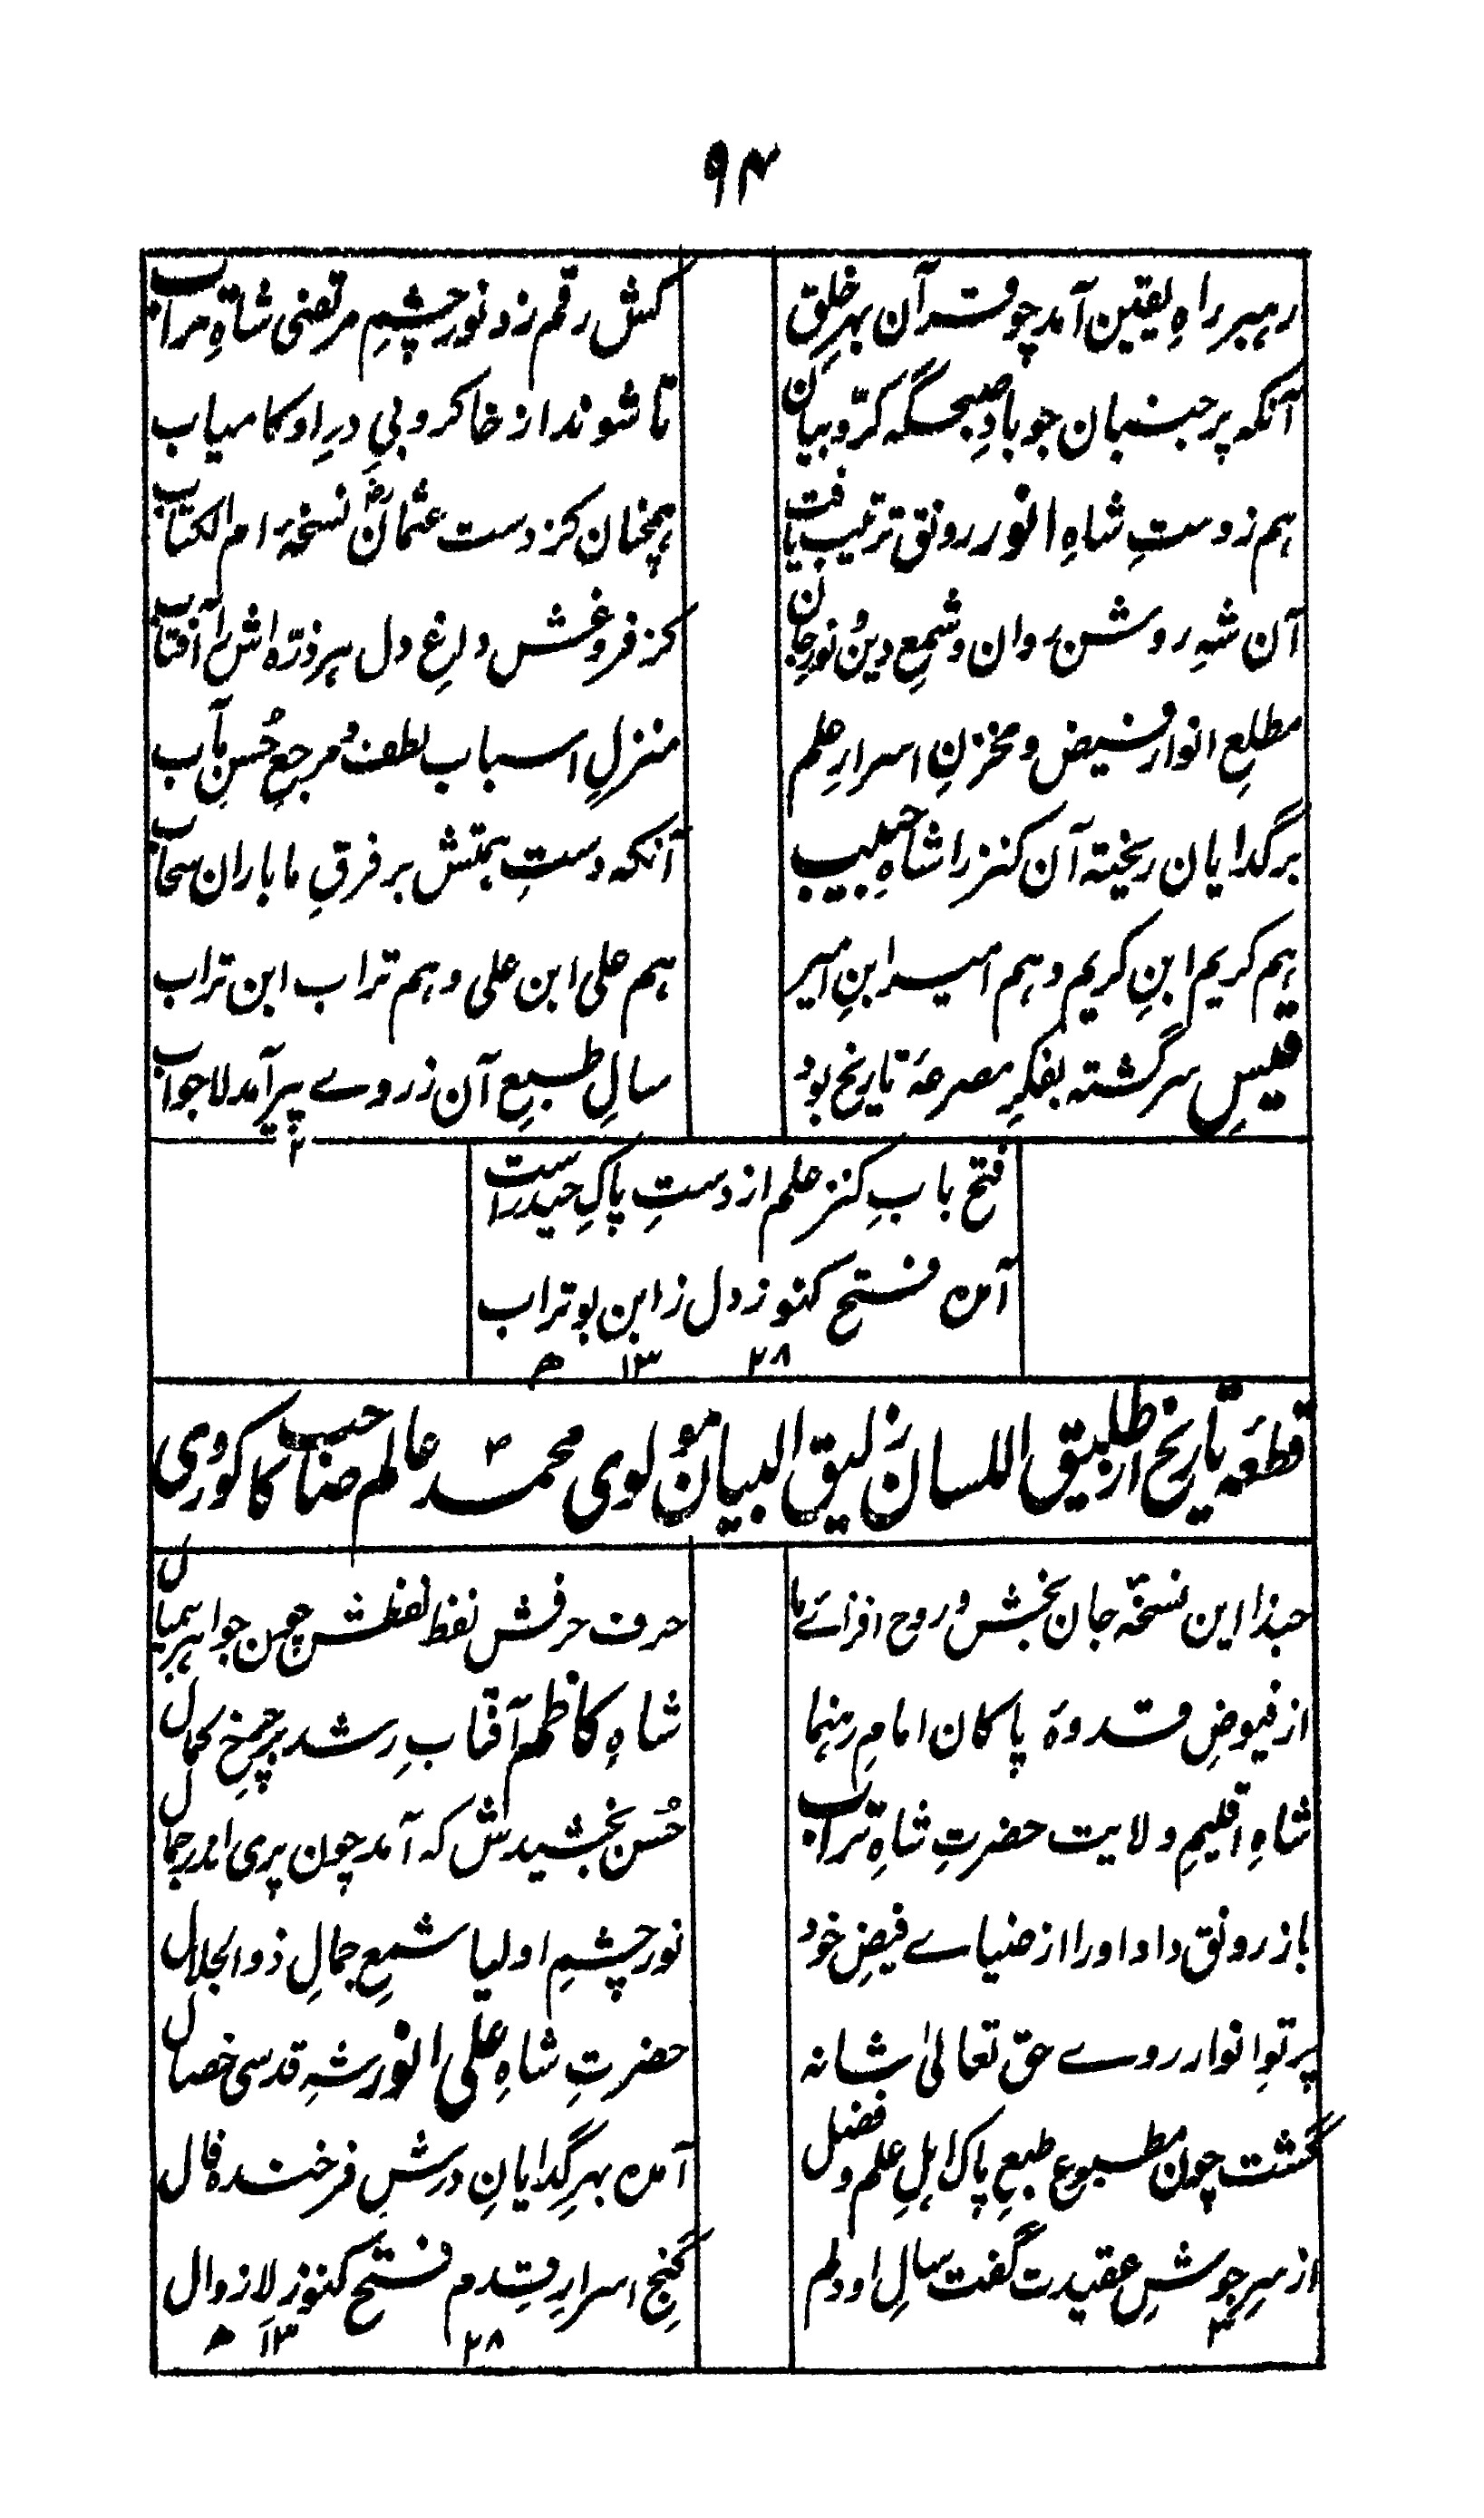 ۹۴
رہبر راہِ یقین آمد چو قرآن بہر خلق
کش رقم زد نور چشمِ مرتضی شاہِ تراب
آنکہ پر جنبان چو بادِ صبحگہ کرّوبیان
تا شوند از خاکروبیِ درِ او کامیاب
ہم ز دستِ شاہِ انور رونق ترتیب یافت
ہمچنان کز دست عثمانؓ نسخۂ ام الکتاب
آن شہِ روشن روان و شمعِ دین و نورِ جان
کز فروغش داغِ دل ہر ذرّہ اش را آفتاب
مطلعِ انوارِ فیض و مخزنِ اسرارِ علم
منزلِ اسباب لطف و مرجعِ حُسنِ مآب
بر گدایان ریختہ آن کنز را شاہِ حبیب
آنکہ دستِ ہمتش بر فرقِ ما باران سحاب
ہم کریم ابنِ کریم و ہم امیر ابنِ امیر
ہم علی ابن علی و ہم تراب ابن تراب
قیسِ سرگشتہ بفکرِ مصرعۂ تاریخ بود
سالِ طبعِ آن ز روے پیر آمد لا جواب
۲
فتح بابِ کنز علم از دستِ پاکِ حیدر است
آمدہ فتح کنوز دل ز ابن بو تراب
۱۳۲۸ ھ
قطعہ تاریخ از طلیق اللسان ذلیق البیان مولوی محمد عالم صاحب کاکوروی
حبذا این نسخۂ جان بخش و روح افزاے ما
حرف حرفش لفظ لفظش چون جواہر بیمثال
از فیوضِ قدوۂ پاکان امامِ رہنما
شاہِ کاظم آفتابِ رشد بر چرخِ کمال
شاہِ اقلیمِ ولایت حضرتِ شاہِ تراب
حُسن بخشیدش کہ آمد چون پری اندر جمال
باز رونق داد او را از ضیاے فیضِ خود
نور چشمِ اولیا شمعِ جمالِ ذوالجلال
پرتوِ انوار روے حق تعالیٰ شانہ
حضرتِ شاہِ علی انور شہِ قدسی خصال
گشت چون مطبوع طبعِ پاک اہلِ علم و فضل
آمدہ بہر گدایانِ درش فرخندہ فال
از سرِ جوشِ عقیدت گفت سالِ او دلم
گنجِ اسرارِ قدم فتح کنوزِ لازوال
۳
۱۳۲۸ ھ